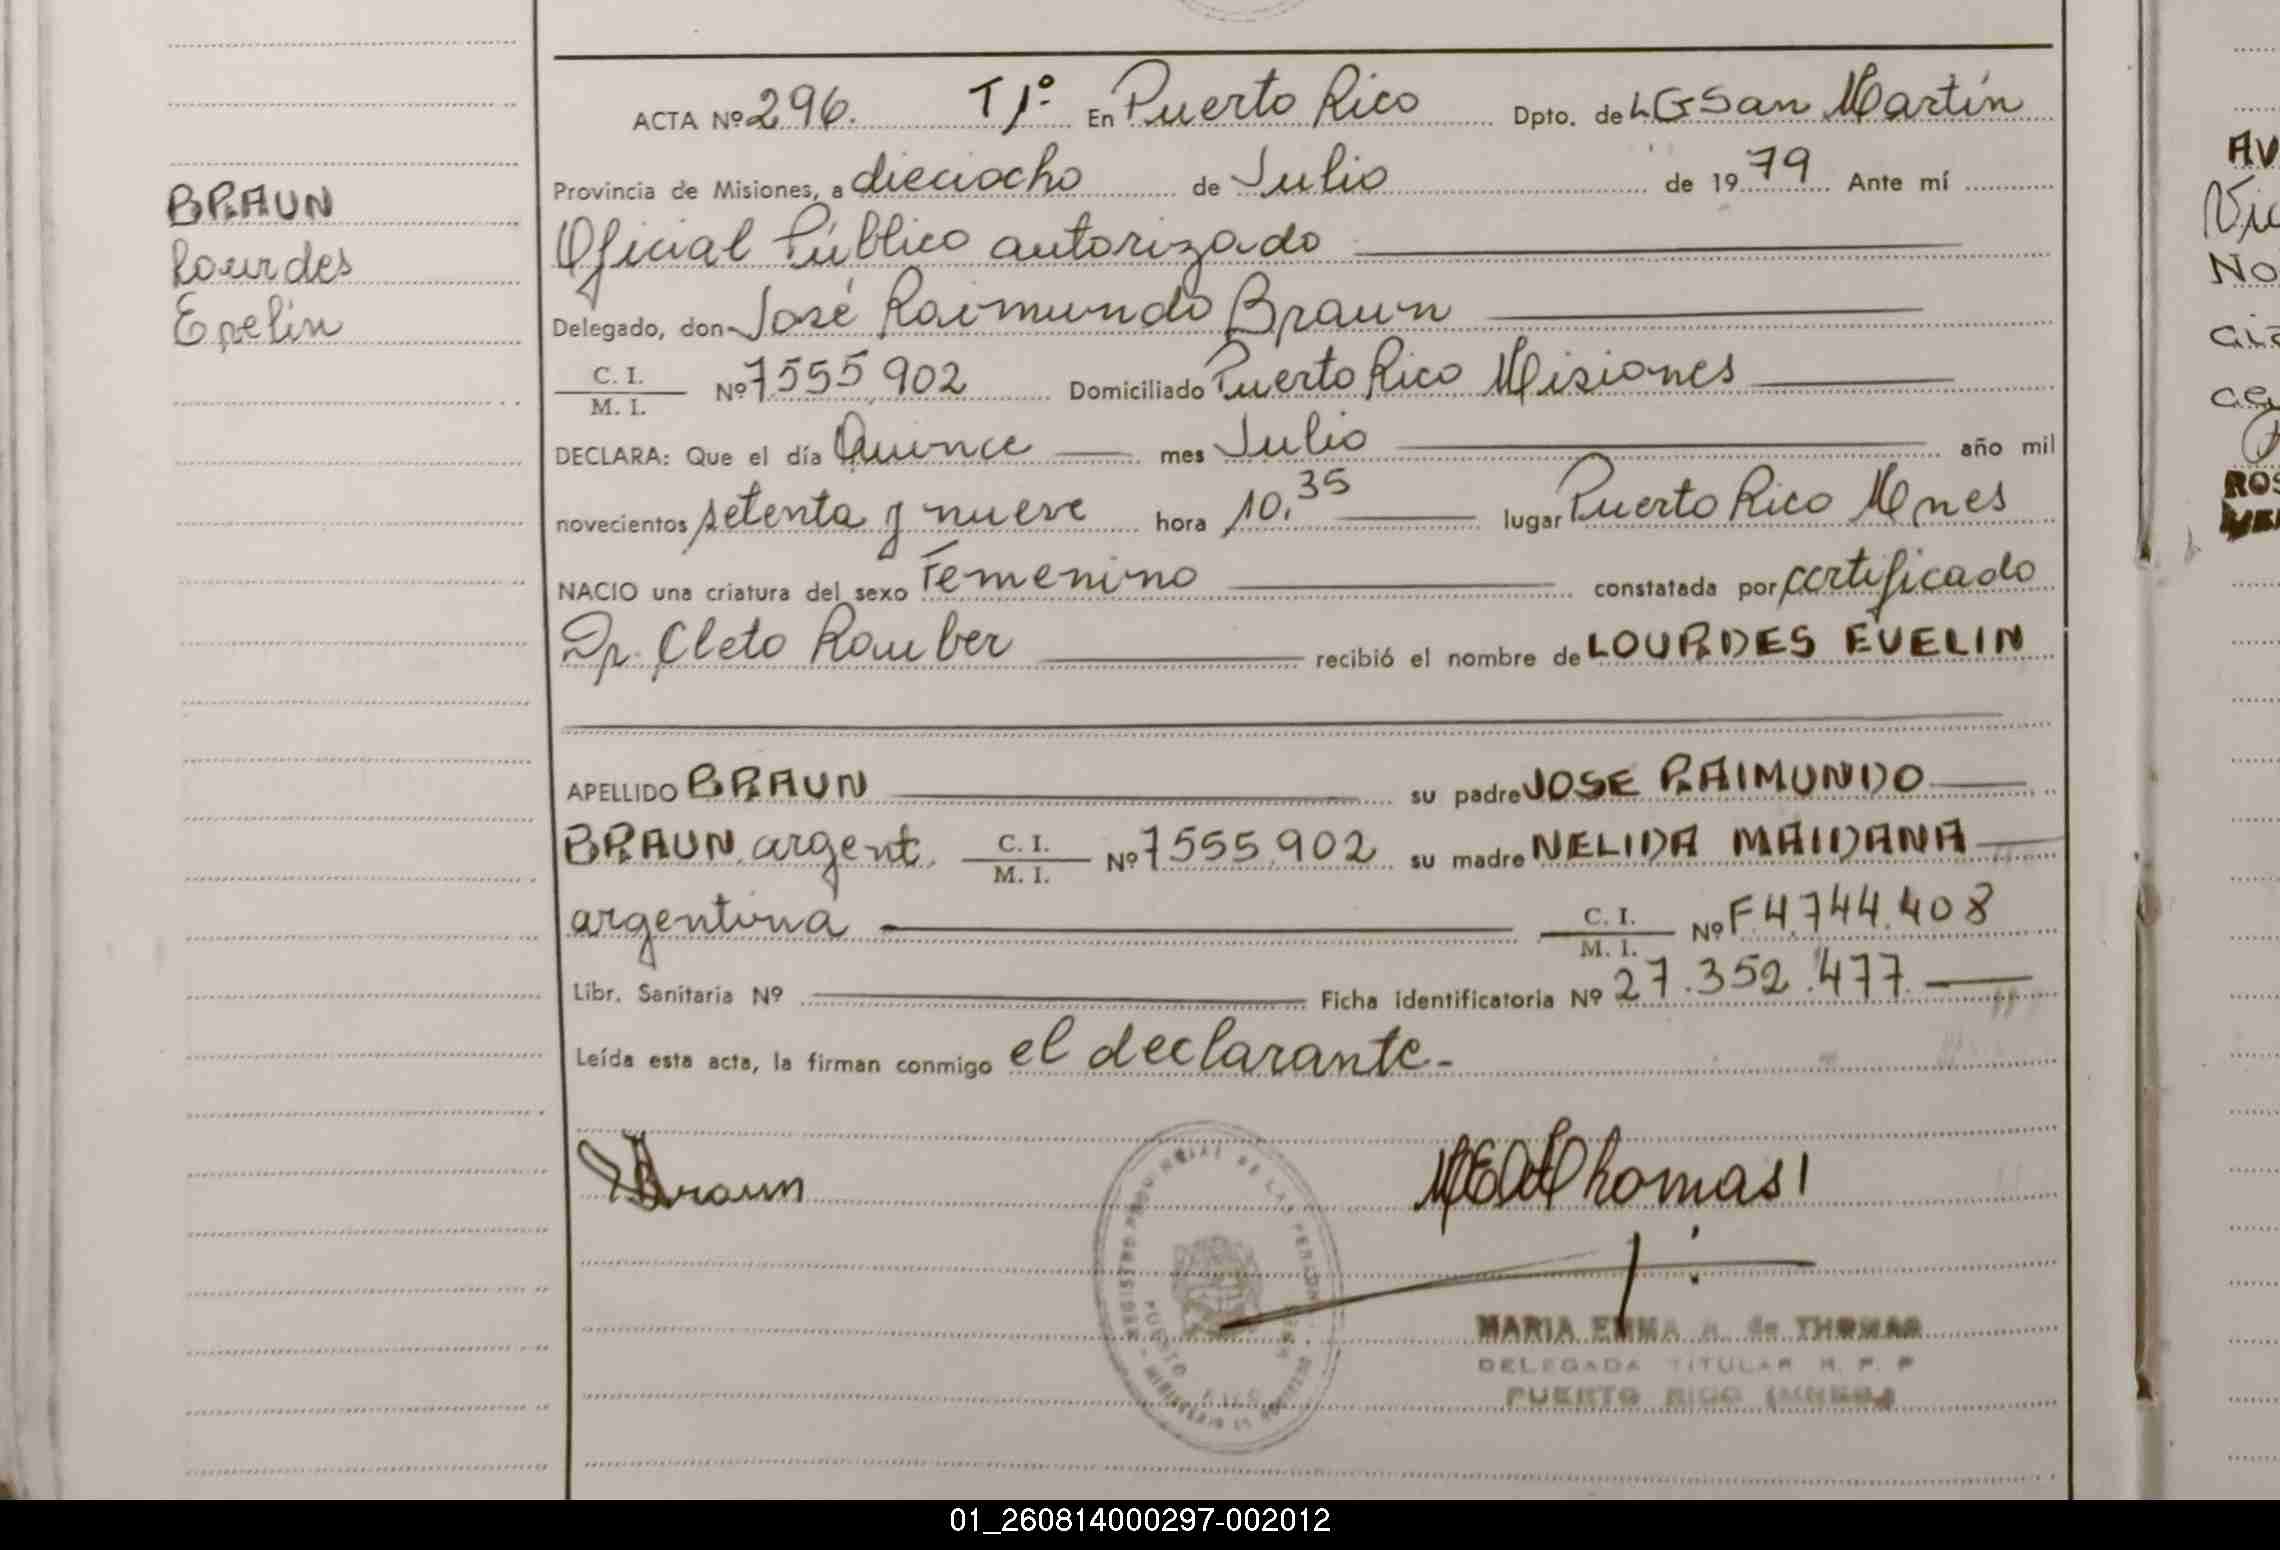 BRAUN
Lourdes
Evelin
ACTA Nº 296. Tº 1º En Puerto Rico Dpto. de L G San Martín
Provincia de Misiones, a dieciocho de Julio de 1979 Ante mí
Oficial Público autorizado
Delegado, don José Raimundo Braun
C. I. / M. I. Nº 7555.902 Domiciliado Puerto Rico Misiones
DECLARA: Que el día Quince mes Julio año mil
novecientos setenta y nueve hora 10,35 lugar Puerto Rico Mnes
NACIO una criatura del sexo Femenino constatada por certificado
Dr. Cleto Rauber recibió el nombre de LOURDES EVELIN
APELLIDO BRAUN su padre JOSE RAIMUNDO
BRAUN argent. C. I. / M. I. Nº 7555.902 su madre NELIDA MAIDANA
argentina C. I. / M. I. Nº F4.744.408
Libr. Sanitaria Nº Ficha identificatoria Nº 27.352.477
Leída esta acta, la firman conmigo el declarante.-
Braun
Thomas
REGISTRO PROVINCIAL DE LAS PERSONAS
PUERTO RICO
MARIA EMMA A. de THOMAS
DELEGADA TITULAR R. P. P
PUERTO RICO (MNES.)
AV
No
ROS
01_260814000297-002012